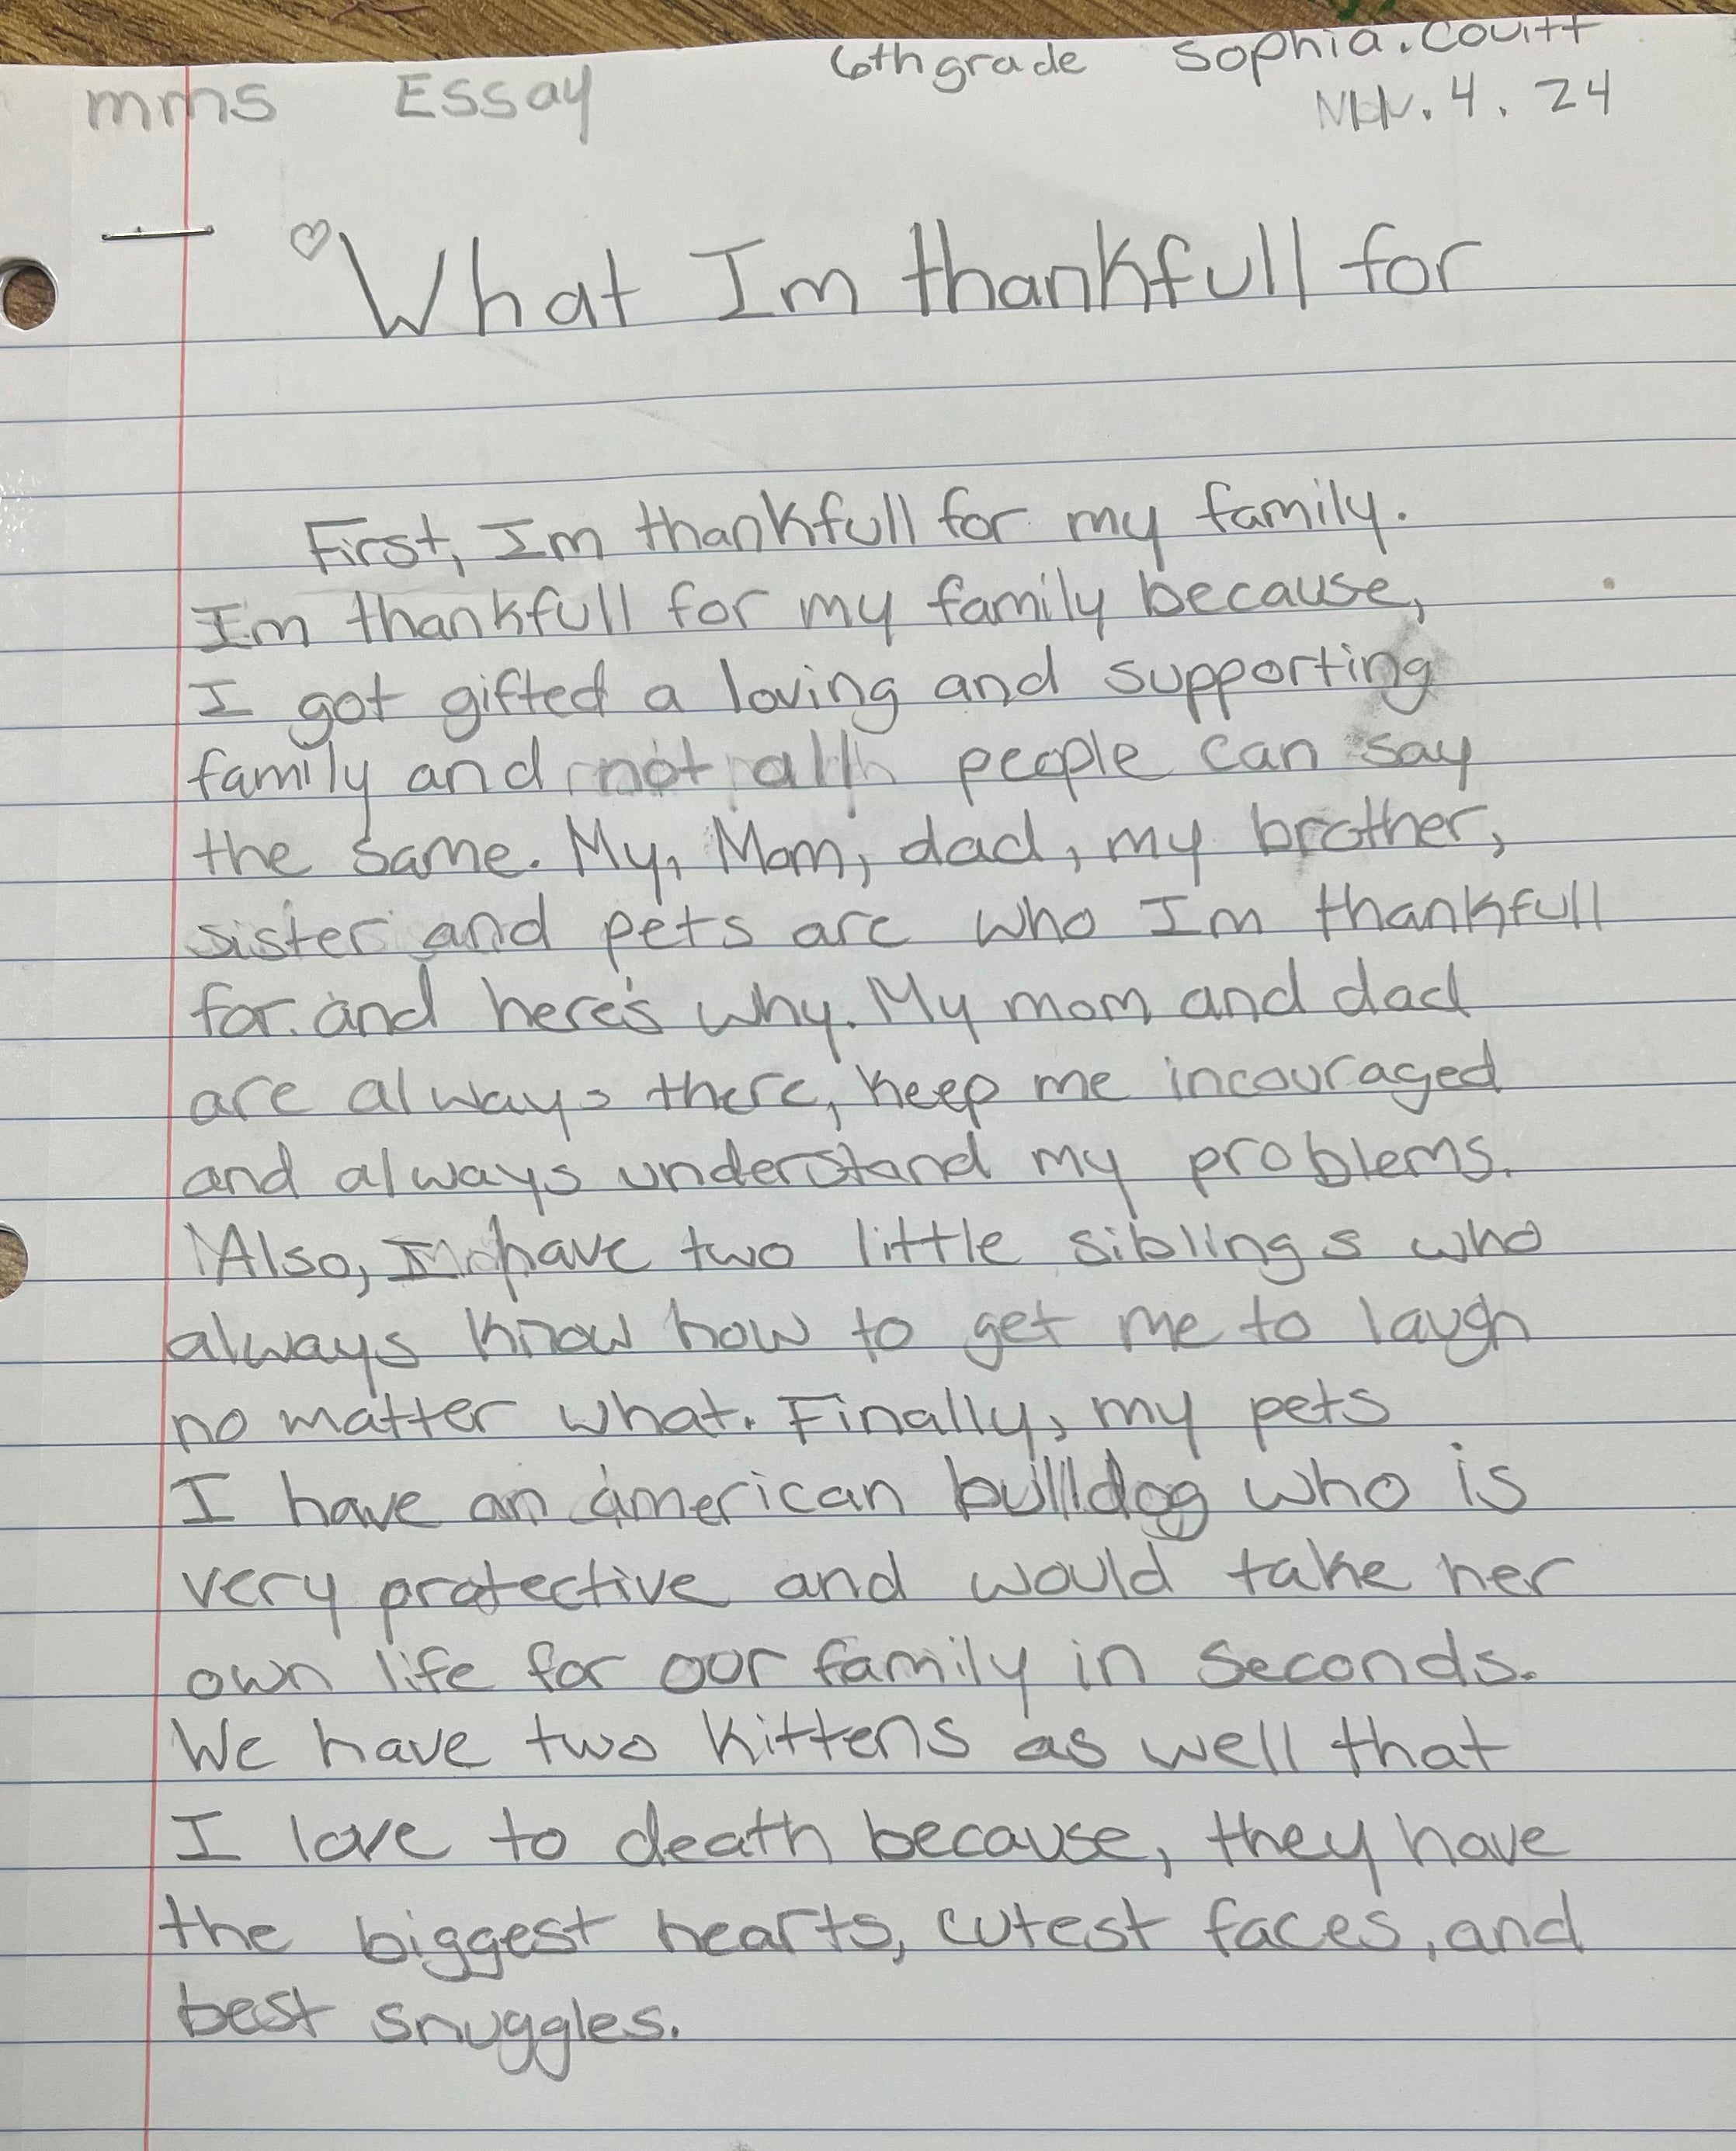 mms Essay 6th grade Sophia.Covitt
Nov. 4. 24
What Im thankfull for
First, Im thankfull for my family.
I'm thankfull for my family because,
I got gifted a loving and supporting
family and not all people can say
the same. My, Mom, dad, my brother,
sister and pets are who Im thankfull
for. and here's why. My mom and dad
are always there, keep me incouraged
and always understand my problems.
Also, I have two little siblings who
always know how to get me to laugh
no matter what. Finally, my pets
I have an american bulldog who is
very protective and would take her
own life for our family in seconds.
We have two kittens as well that
I love to death because, they have
the biggest hearts, cutest faces, and
best snuggles.